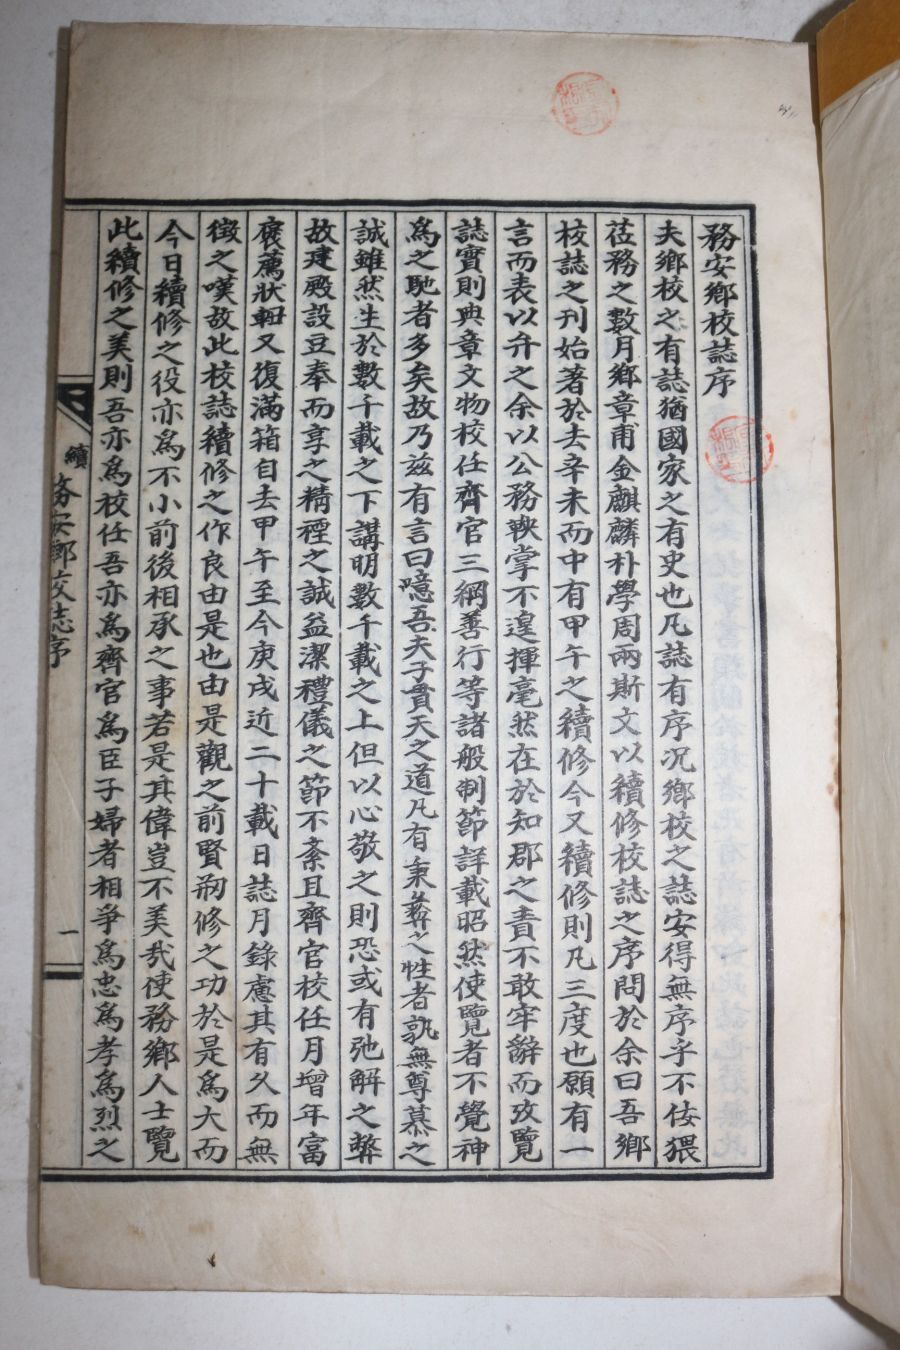 務安鄕校誌序
夫鄕校之有誌猶國家之有史也凡誌有序况鄕校之誌安得無序乎不佞猥
莅務之數月鄕章甫金麒麟朴學周兩斯文以續修校誌之序問於余曰吾鄕
校誌之刊始著於去辛未而中有甲午之續修今又續修則凡三度也願有一
言而表以弁之余以公務鞅掌不遑揮毫然在於知郡之責不敢牢辭而攷覽
誌實則典章文物校任齊官三綱善行等諸般制節詳載昭然使覽者不覺神
爲之馳者多矣故乃玆有言曰噫吾夫子貫天之道凡有秉彛之性者孰無尊慕之
誠雖然生於數千載之下講明數千載之上但以心敬之則恐或有弛解之弊
故建殿設豆奉而享之精禋之誠益潔禮儀之節不紊且齊官校任月增年富
褒薦狀軸又復滿箱自去甲午至今庚戌近二十載日誌月錄慮其有久而無
徵之嘆故此校誌續修之作良由是也由是觀之前賢刱修之功於是爲大而
今日續修之役亦爲不小前後相承之事若是其偉豈不美哉使務鄕人士覽
此續修之美則吾亦爲校任吾亦爲齊官爲臣子婦者相爭爲忠爲孝爲烈之
續 務安鄕校誌序
一